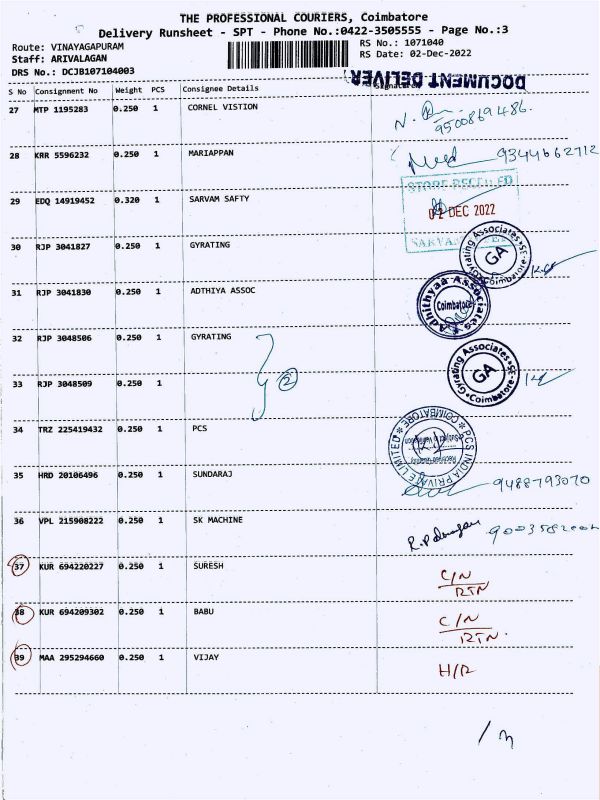 THE PROFESSIONAL COURIERS, Coimbatore
Delivery Runsheet - SPT - Phone No.:0422-3505555 - Page No.:3
Route: VINAYAGAPURAM
Staff: ARIVALAGAN
DRS No.: DCJB107104003
RS No.: 1071040
RS Date: 02-Dec-2022
DOCUMENT DELIVER
S No Consignment No Weight PCS Consignee Details Signature
27 MTP 1195283 0.250 1 CORNEL VISTION 9500869486
28 KRR 5596232 0.250 1 MARIAPPAN 9344662712
29 EDQ 14919452 0.320 1 SARVAM SAFTY
02 DEC 2022
30 RJP 3041827 0.250 1 GYRATING
Gyrating Associates
GA
Coimbatore
31 RJP 3041830 0.250 1 ADTHIYA ASSOC
Adhithyaa Associates
Coimbatore
32 RJP 3048506 0.250 1 GYRATING
33 RJP 3048509 0.250 1
2
Gyrating Associates
GA
Coimbatore
34 TRZ 225419432 0.250 1 PCS
PCS INDIA PRIVATE LIMITED
COIMBATORE
35 HRD 20106496 0.250 1 SUNDARAJ 9488793070
36 VPL 215908222 0.250 1 SK MACHINE
37 KUR 694220227 0.250 1 SURESH C/N
RTN
38 KUR 694209302 0.250 1 BABU C/N
RTN.
39 MAA 295294660 0.250 1 VIJAY H/R